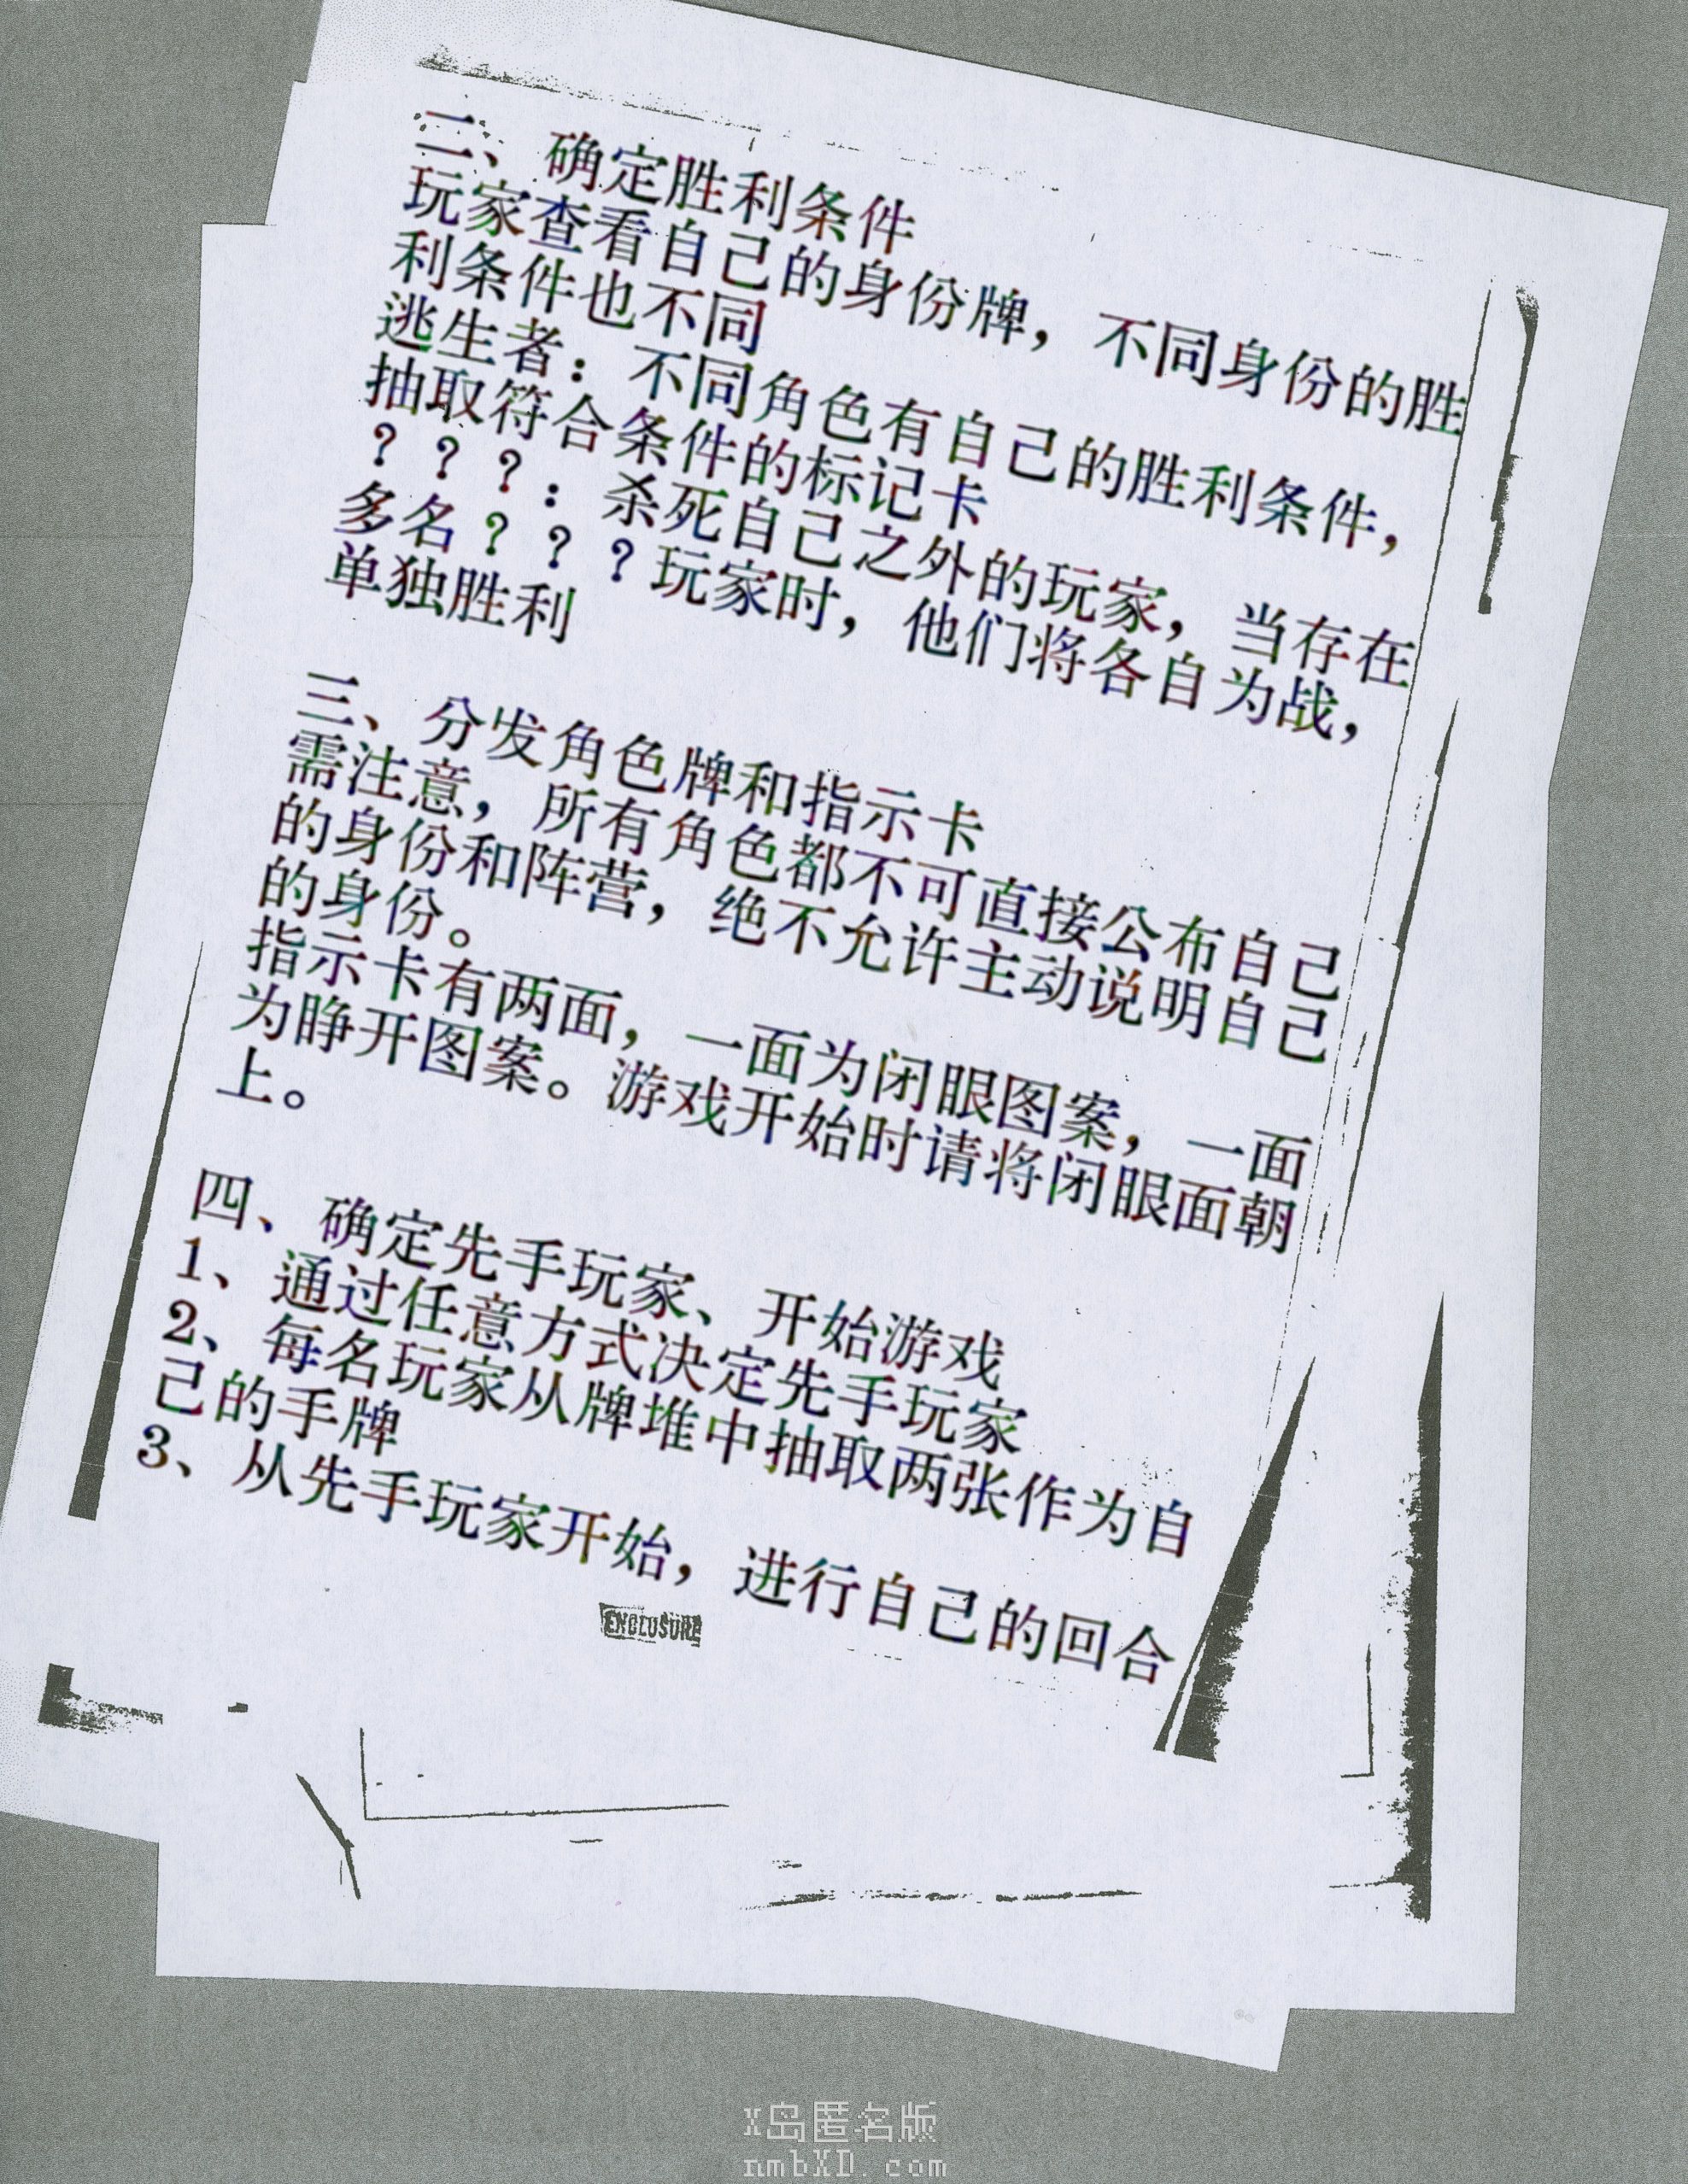 二、确定胜利条件
玩家查看自己的身份牌，不同身份的胜
利条件也不同
逃生者：不同角色有自己的胜利条件，
抽取符合条件的标记卡
？？？：杀死自己之外的玩家，当存在
多名？？？玩家时，他们将各自为战，
单独胜利
三、分发角色牌和指示卡
需注意，所有角色都不可直接公布自己
的身份和阵营，绝不允许主动说明自己
的身份。
指示卡有两面，一面为闭眼图案，一面
为睁开图案。游戏开始时请将闭眼面朝
上。
四、确定先手玩家、开始游戏
1、通过任意方式决定先手玩家
2、每名玩家从牌堆中抽取两张作为自
己的手牌
3、从先手玩家开始，进行自己的回合
ENCLOSURE
X岛匿名版
nmbXD.com